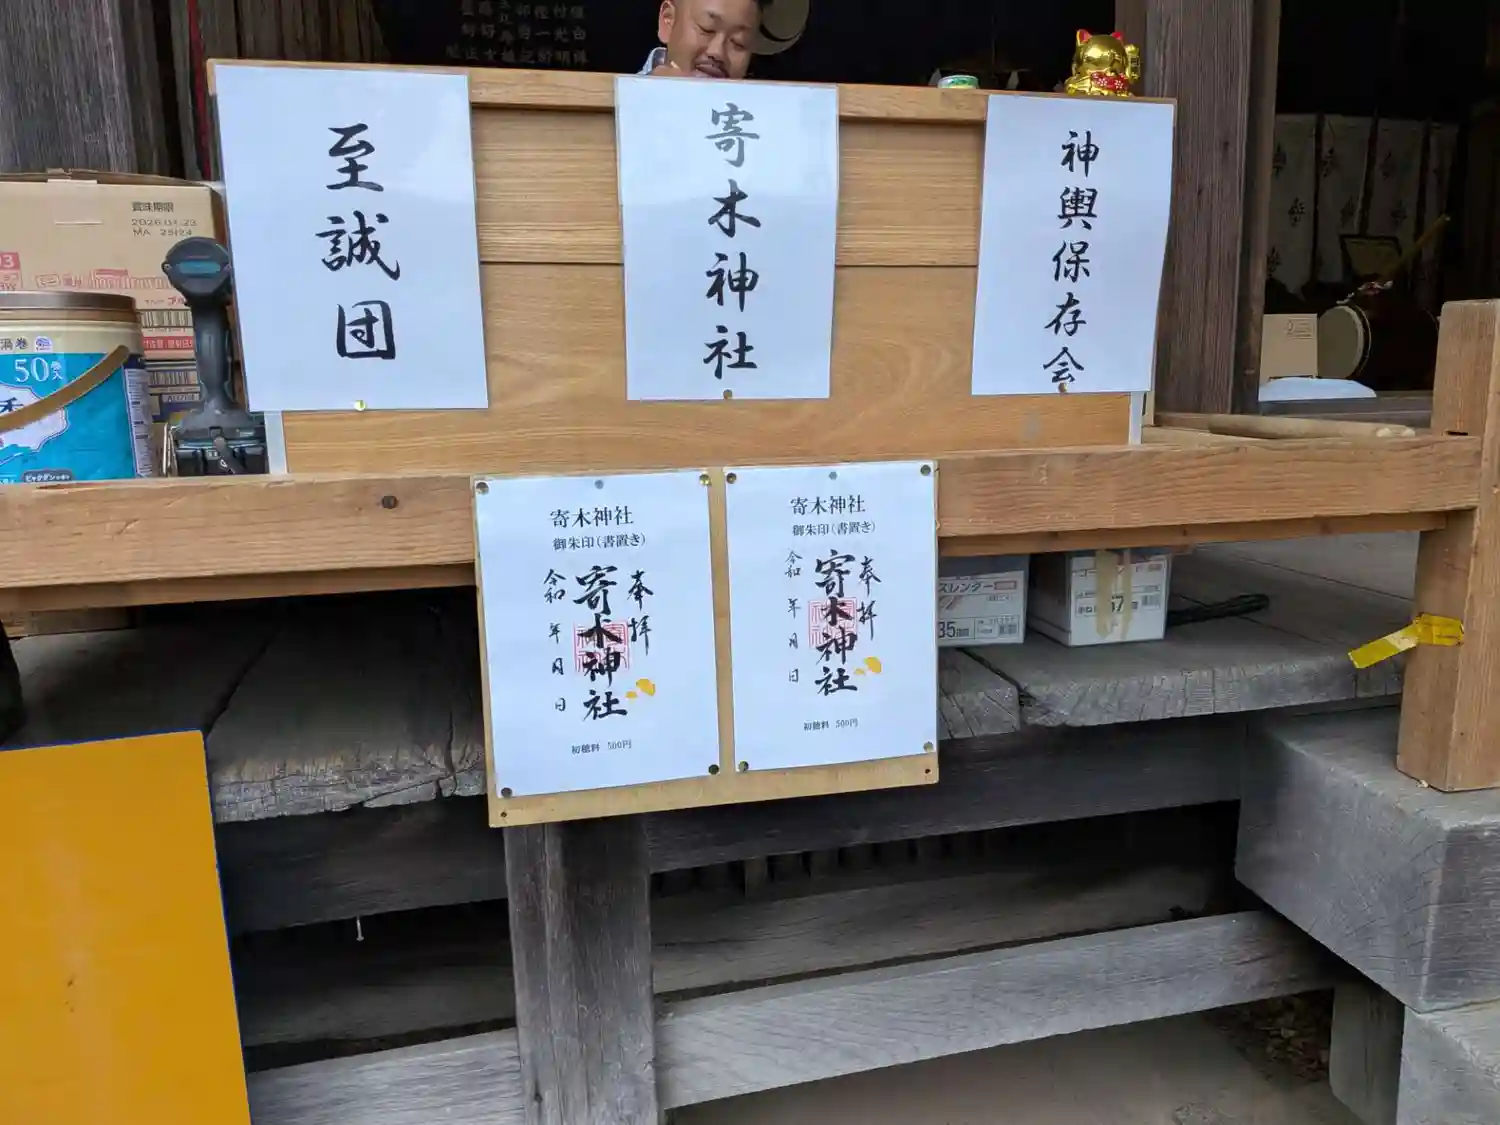 至誠団
寄木神社
神輿保存会
賞味期限
2026.01.23
渦巻
50巻入
寄木神社
御朱印(書置き)
奉拝
寄木神社
令和 年 月 日
初穂料 500円
寄木神社
御朱印(書置き)
奉拝
寄木神社
令和 年 月 日
初穂料 500円
スレンダー
35